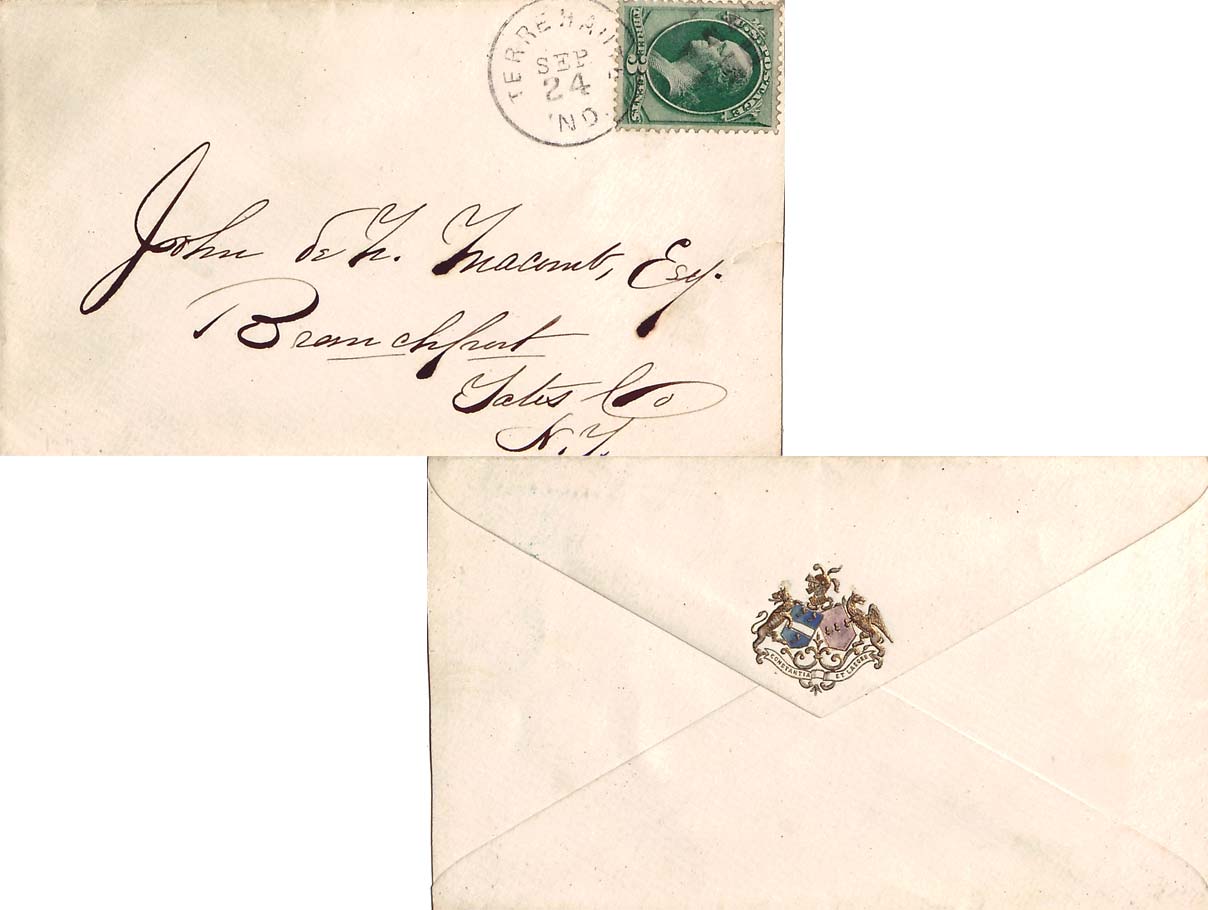 TERRE HAUTE
SEP
24
IND.
U.S. POSTAGE
John de N. Macomb, Esq.
Branchport
Yates Co
N.Y.
CONSTANTIA ET LABORE